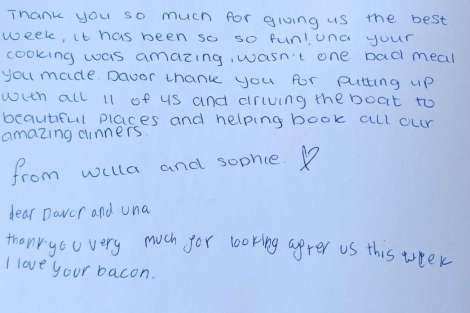 Thank you so much for giving us the best
week, it has been so so fun! Una your
cooking was amazing, wasn't one bad meal
you made. Davor thank you for putting up
with all 11 of us and driving the boat to
beautiful places and helping book all our
amazing dinners.
from willa and sophie. ♡
dear Davor and Una
thank you very much for looking after us this week
I love your bacon.